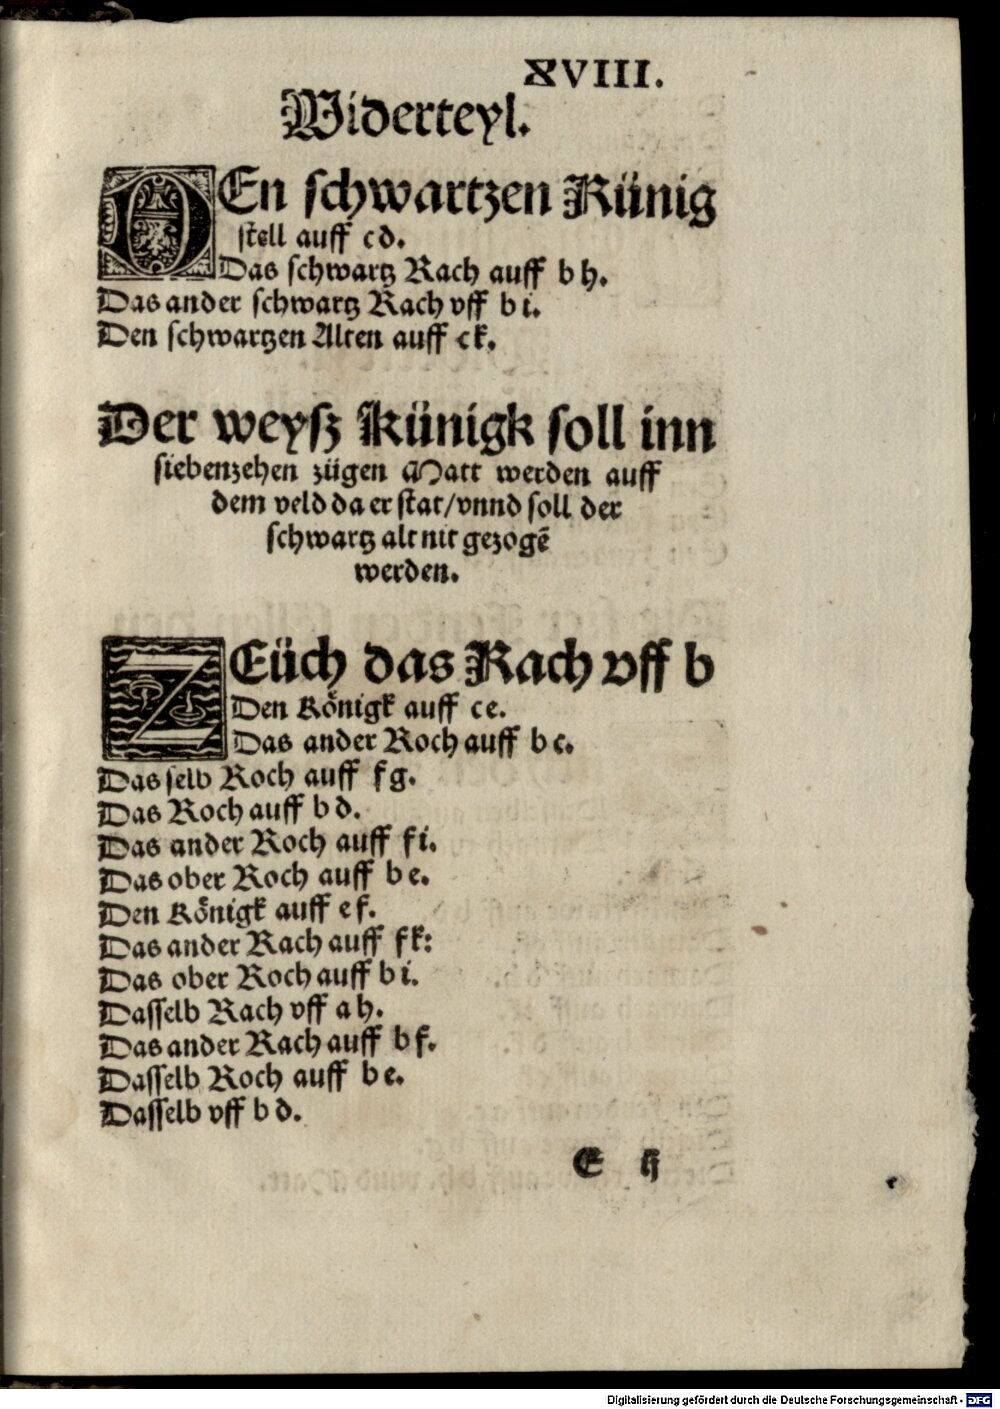 XVIII.
Widerteyl.
DEn schwartzen Künig
stell auff cd.
Das schwartz Rach auff bh.
Das ander schwartz Rach vff bi.
Den schwartzen Alten auff ck.
Der weysz Künigk soll inn
siebenzehen zügen Matt werden auff
dem veld da er stat/vnnd soll der
schwartz alt nit gezogē
werden.
ZEüch das Rach vff b
Den Kőnigk auff ce.
Das ander Roch auff bc.
Das selb Roch auff fg.
Das Roch auff bd.
Das ander Roch auff fi.
Das ober Roch auff be.
Den Kőnigk auff ef.
Das ander Rach auff fk:
Das ober Roch auff bi.
Dasselb Rach vff ah.
Das ander Rach auff bf.
Dasselb Roch auff be.
Dasselb vff bd.
E ij
Digitalisierung gefördert durch die Deutsche Forschungsgemeinschaft - DFG